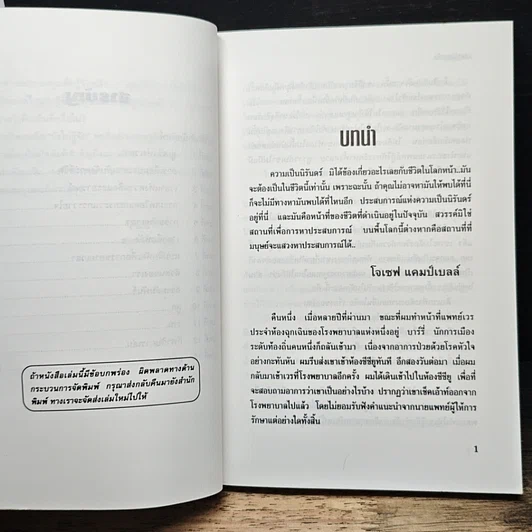 สารบัญ
ถ้าหนังสือเล่มนี้มีข้อบกพร่อง ผิดพลาดทางด้าน
กระบวนการจัดพิมพ์ กรุณาส่งกลับคืนมายังสำนัก
พิมพ์ ทางเราจะจัดส่งเล่มใหม่ไปให้
บทนำ
ความเป็นนิรันดร์ มิได้ข้องเกี่ยวอะไรเลยกับชีวิตในโลกหน้า..มัน
จะต้องเป็นในชีวิตนี้เท่านั้น เพราะฉะนั้น ถ้าคุณไม่อาจหามันให้พบได้ที่นี่
ก็จะไม่มีทางหามันพบได้ที่ไหนอีก ประสบการณ์แห่งความเป็นนิรันดร์
อยู่ที่นี่ และมันคือหน้าที่ของชีวิตที่ดำเนินอยู่ในปัจจุบัน สวรรค์มิใช่
สถานที่เพื่อการหาประสบการณ์ บนพื้นโลกนี้ต่างหากคือสถานที่ที่
มนุษย์จะแสวงหาประสบการณ์ได้..
โจเซฟ แคมป์เบลล์
คืนหนึ่ง เมื่อหลายปีที่ผ่านมา ขณะที่ผมทำหน้าที่แพทย์เวร
ประจำห้องฉุกเฉินของโรงพยาบาลแห่งหนึ่งอยู่ บาร์รี่ นักการเมือง
ระดับท้องถิ่นคนหนึ่งก็ถลันเข้ามา เนื่องจากอาการป่วยด้วยโรคหัวใจ
อย่างกะทันหัน ผมรีบส่งเขาเข้าห้องซีซียูทันที อีกสองวันต่อมา เมื่อผม
กลับมาเข้าเวรที่โรงพยาบาลอีกครั้ง ผมได้เดินเข้าไปในห้องซีซียู เพื่อที่
จะสอบถามอาการว่าเขาเป็นอย่างไรบ้าง ปรากฏว่าเขาเช็คเอ้าท์ออกจาก
โรงพยาบาลไปแล้ว โดยไม่ยอมรับฟังคำแนะนำจากนายแพทย์ผู้ให้การ
รักษาแต่อย่างใดทั้งสิ้น
1